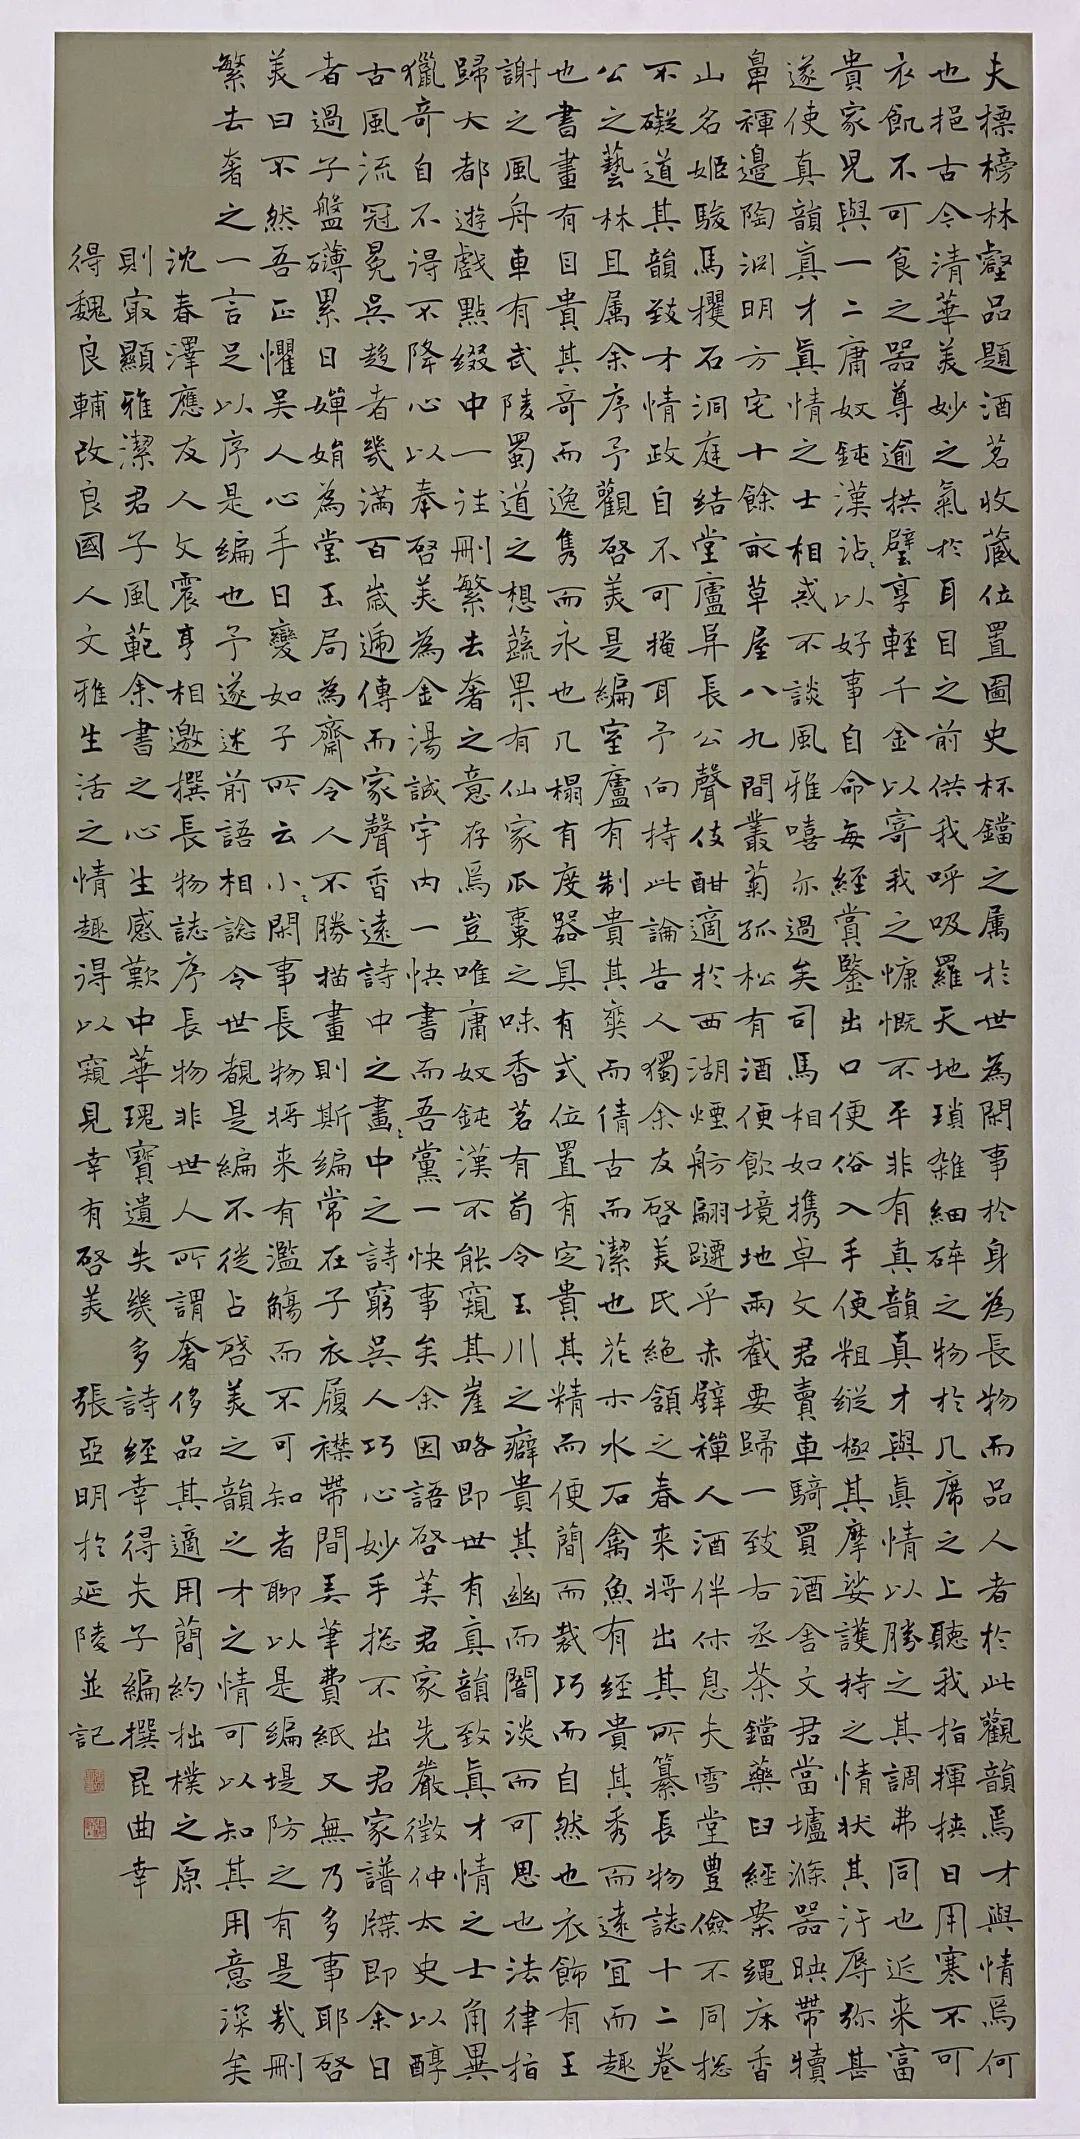 夫標榜林壑品題酒茗收藏位置圖史杯鐺之属於世為閑事於身為長物而品人者於此觀韻焉才與情焉何
也挹古今清華美妙之氣於耳目之前供我呼吸羅天地瑣雜細碎之物於几席之上聽我指揮挟日用寒不可
衣飢不可食之器尊逾拱璧享輕千金以寄我之慷慨不平非有真韻真才與真情以勝之其調弗同也近来富
貴家児與一二庸奴鈍漢沾々以好事自命每經賞鑒出口便俗入手便粗縱極其摩娑護持之情狀其汙辱弥甚
遂使真韻真才真情之士相惑不談風雅嘻亦過矣司馬相如携卓文君賣車騎買酒舍文君當壚滌器映帶犢
鼻褌邊陶渊明方宅十餘畝草屋八九間叢菊孤松有酒便飲境地兩截要歸一致右丞茶鐺藥臼經案繩床香
山名姬駿馬攫石洞庭結堂廬异長公聲伎酣適於西湖煙舫翩躚乎赤壁禪人酒伴休息夫雪堂豊儉不同捴
不礙道其韻致才情政自不可掩耳予向持此論告人獨余友啓美氏絶頷之春来將出其所纂長物誌十二卷
公之藝林且属余序予觀啓美是編室廬有制貴其奕而倩古而潔也花木水石禽魚有經貴其秀而遠宜而趣
也書畫有目貴其奇而逸隽而永也几榻有度器具有式位置有定貴其精而便簡而裁巧而自然也衣飾有王
謝之風舟車有武陵蜀道之想蔬果有仙家瓜棗之味香茗有荀令玉川之癖貴其幽而闇淡而可思也法律指
歸大都遊戲點綴中一往刪繁去奢之意存焉豈唯庸奴鈍漢不能窺其崖略即世有真韻致真才情之士角異
獵奇自不得不降心以奉啓美為金湯誠宇内一快書而吾黨一快事矣余因語啓美君家先嚴徵仲太史以醇
古風流冠冕吳趨者幾滿百歲遞傳而家聲香遠詩中之畫々中之詩窮吳人巧心妙手捴不出君家譜牒即余日
者過子盤礴累日嬋娟為堂玉局為齋令人不勝描畫則斯編常在子衣履襟帶間弄筆費紙又無乃多事耶啓
美曰不然吾正懼吳人心手日變如子所云小々閑事長物將来有濫觴而不可知者聊以是編堤防之有是哉刪
繁去奢之一言足以序是編也予遂述前語相諗令世覩是編不從占啓美之韻之才之情可以知其用意深矣
沈春澤應友人文震亨相邀撰長物誌序長物非世人所謂奢侈品其適用簡約拙樸之原
則㝡顯雅潔君子風範余書之心生感歎中華瑰寶遺失幾多詩經幸得夫子編撰昆曲幸
得魏良輔改良國人文雅生活之情趣得以窺見幸有啓美 張亞明於延陵並記